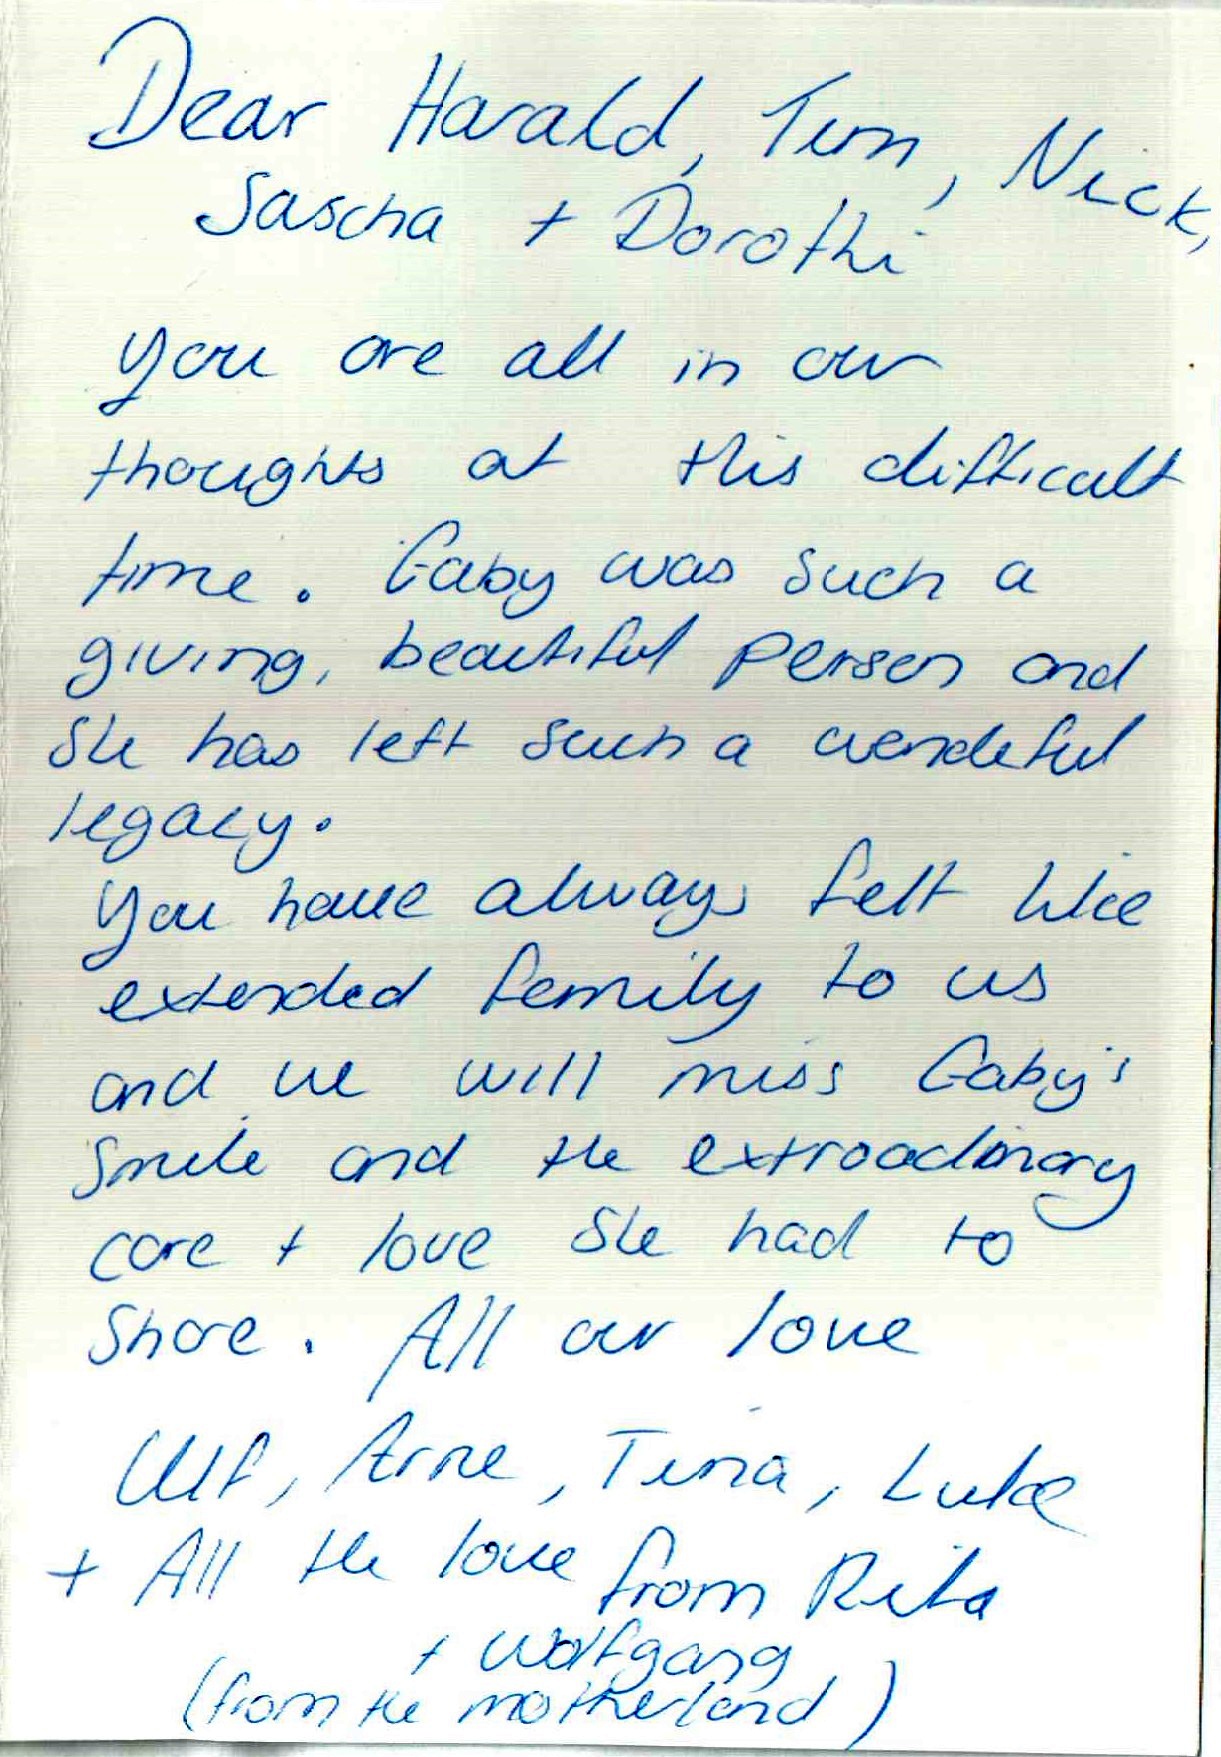 Dear Harald, Tim, Nick,
Sascha + Dorothi
You are all in our
thoughts at this difficult
time. Gaby was such a
giving, beautiful person and
She has left such a wondeful
legacy.
You have always felt like
extended family to us
and we will miss Gaby's
Smile and the extroadinary
care + love She had to
Share. All our love
Ulf, Arne, Tina, Luke
+ All the love from Rita
+ Wolfgang
(from the motherland)